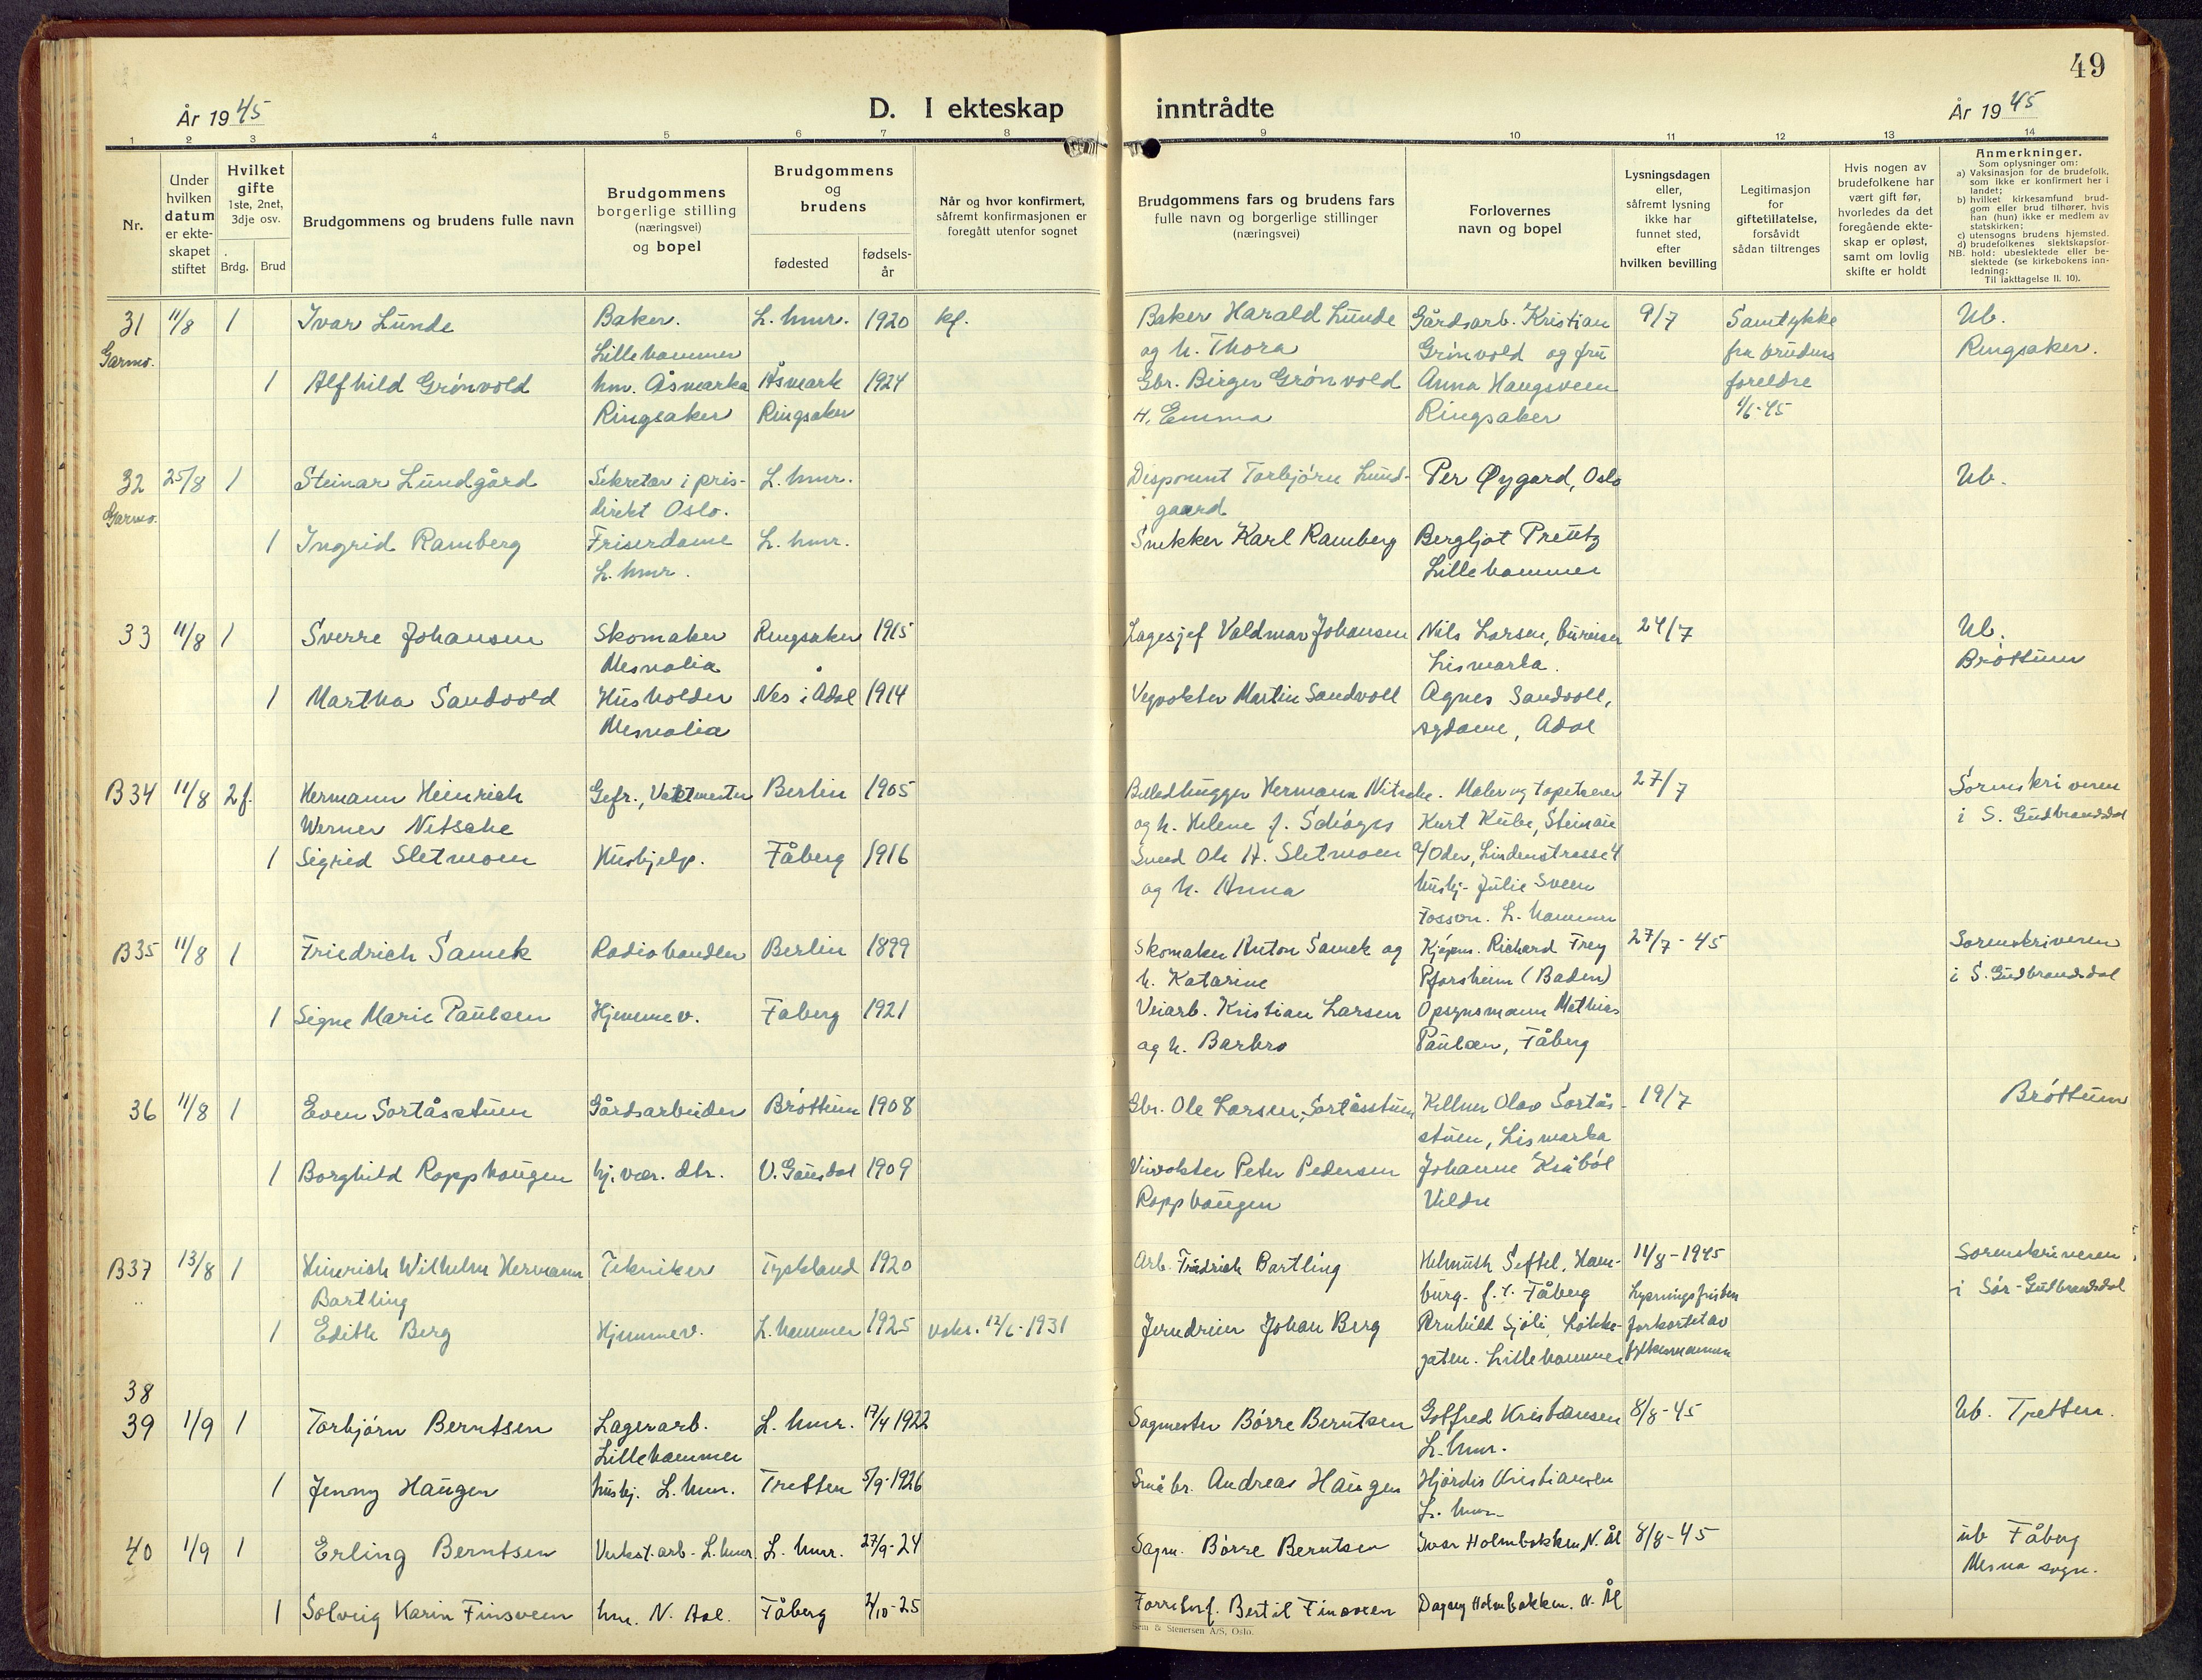 49
År 1945
D. I ekteskap inntrådte
År 1945
1 2 3 4 5 6 7 8 9 10 11 12 13 14
Nr.
Under hvilken datum er ekteskapet stiftet
Hvilket gifte 1ste, 2net, 3dje osv.
Brdg. Brud
Brudgommens og brudens fulle navn
Brudgommens borgerlige stilling (næringsvei) og bopel
Brudgommens og brudens
fødested
fødselsår
Når og hvor konfirmert, såfremt konfirmasjonen er foregått utenfor sognet
Brudgommens fars og brudens fars fulle navn og borgerlige stillinger (næringsvei)
Forlovernes navn og bopel
Lysningsdagen eller, såfremt lysning ikke har funnet sted, efter hvilken bevilling
Legitimasjon for giftetillatelse, forsåvidt sådan tiltrenges
Hvis nogen av brudefolkene har vært gift før, hvorledes da det foregående ekteskap er opløst, samt om lovlig skifte er holdt
Anmerkninger.
Som oplysninger om:
a) Vaksinasjon for de brudefolk, som ikke er konfirmert her i landet;
b) hvilket kirkesamfund brudgom eller brud tilhører, hvis han (hun) ikke er medlem av statskirken;
c) utensogns brudens hjemsted.
d) brudefolkenes slektskapsforhold: ubeslektede eller beslektede (se kirkebokens innledning:
NB.
Til iakttagelse II. 10).
31 11/8 1 Ivar Lunde Baker. L.hmr. 1920 kf. Baker Harald Lunde Gårdsarb. Kristian 9/7 Samtykke Ub.
Garmo. Lillehammer og h. Thora Grönvold og fru fra brudens Ringsaker.
1 Alfhild Grönvold hm. Åsmarka Åsmark 1924 Gbr. Birger Grönvold Anna Haugsveen foreldre
Ringsaker Ringsaker H. Emma Ringsaker 4/6-45
32 25/8 1 Steinar Lundgård Sekretær i pris- L.hmr. Disponent Torbjörn Lund- Per Øygard, Oslo Ub.
Garmo. direkt Oslo. gaard
1 Ingrid Ramberg Friserdame L.hmr. Snekker Karl Ramberg Bergljot Preutz
L.hmr. Lillehammer
33 11/8 1 Sverre Johansen Skomaker Ringsaker 1915 Lagesjef Valdmar Johansen Nils Larsen, bureiser 24/7 Ub.
Mesnalia Lismarka. Bröttum
1 Martha Sandvold Husholder Nes i Ådal 1914 Vegvokter Martin Sandvoll Agnes Sandvoll,
Mesnalia sydame, Ådal
B34 11/8 2f. Hermann Heinrich Gefr., Vaktmester Berlin 1905 Billedhugger Hermann Nitsche. Maler og tapetserer 27/7 Sorenskriveren
Werner Nitsche og h. Helene f. Kurt Kube, Steinau i S. Gudbrandsdal
1 Sigrid Sletmoen Hushjelp. Fåberg 1916 Smed Ole H. Sletmoen a/Oder, Lindenstrasse 4
og h. Anna hushj. Julie Sveen
L. hammer
B35 11/8 1 Friedrich Samek Radiohandler Berlin 1899 Skomaker Anton Samek og Kjöpm. Richard Frey 27/7-45 Sorenskriveren
h. Katarine Pforsheim (Baden) i S. Gudbrandsdal
1 Signe Marie Paulsen Hjemmev. Faberg 1921 Veiarb. Kristian Larsen Opsynsmann Mathias
og h. Barbro Paulsen, Fåberg
36 11/8 1 Even Sortåsstuen Gårdsarbeider Bröttum 1908 Gbr. Ole Larsen, Sortåsstuen Kellner Olav Sortås- 19/7 Bröttum
stuen, Lismarka
1 Borghild Ropphaugen hj. vær. dtr. V. Gausdal 1909 Veivokter Peter Pedersen Johanne Kråböl
Ropphaugen Veldre
B37 13/8 1 Heinrich Wilhelm Hermann Tekniker Tyskland 1920 Arb. Friedrich Bartling Helmuth Seftel, Ham- 11/8-1945 Sorenskriveren
Bartling burg. f.t. Fåberg Lysningsfristen i Sör-Gudbrandsdal
1 Edith Berg Hjemmev. L.hammer 1925 vaks. 12/6-1931 Jerndreier Johan Berg Arnhild Sjöli, Løkke- forkortet av
gaten. Lillehammer fylkesmannen
38
39 1/9 1 Torbjörn Berntsen Lagerarb. L.hmr. 17/4 1922 Sagmester Börre Berntsen Gotfred Kristiansen 8/8-45 Ub. Tretten.
Lillehammer L.hmr.
1 Jenny Haugen hushj. L.hmr. Tretten 5/9-1926 Småbr. Andreas Haugen Hjördis Kristiansen
L.hmr.
40 1/9 1 Erling Berntsen Verkst.arb. L.hmr L.hmr. 27/9-24 Sagm. Börre Berntsen Ivar Holmbakken N. Ål 8/8-45 ub Fåberg
Mesna sogn.
1 Solveig Karin Finsveen hm. N. Aal. Fåberg 2/10-25 Bertil Finsveen Dagny Holmbakken. N. Ål
Sem & Stenersen A/S, Oslo.